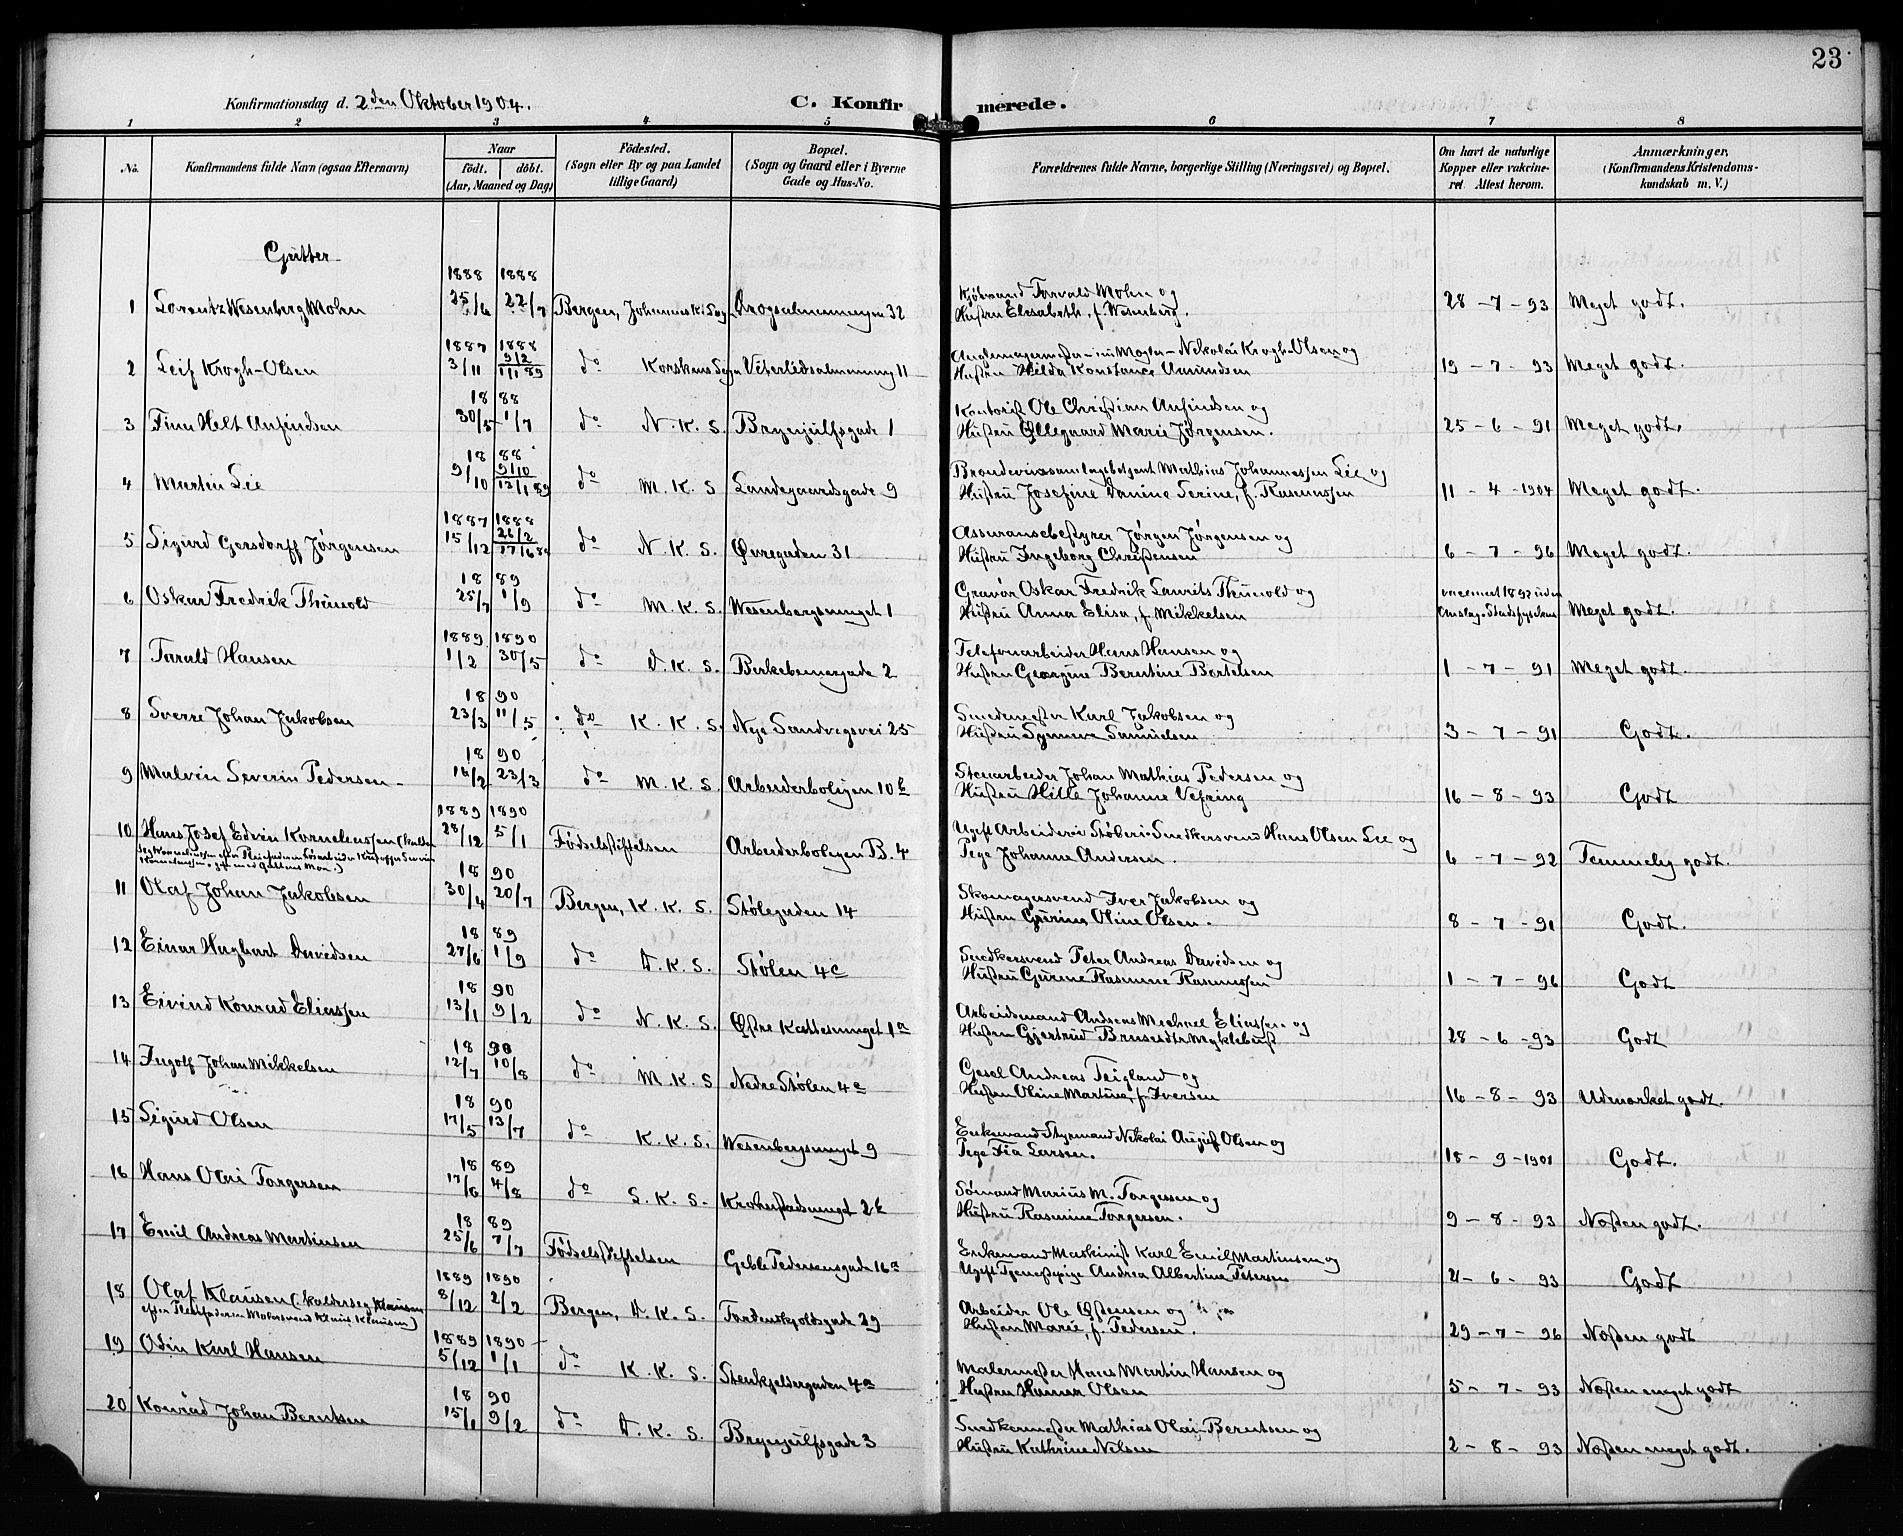 23
Konfirmationsdag d. 2den Oktober 1904.
C. Konfirmerede.
1 2 3 4 5 6 7 8
No. Konfirmandens fulde Navn (ogsaa Efternavn) Naar født. døbt. (Aar, Maaned og Dag) Fødested. (Sogn eller By og paa Landet tillige Gaard) Bopæl. (Sogn og Gaard eller i Byerne Gade og Hus-No. Forældrenes fulde Navne, borgerlige Stilling (Næringsvei) og Bopæl. Om havt de naturlige Kopper eller vakcineret. Attest herom. Anmærkninger, (Konfirmandens Kristendomskundskab m. V.)
Gutter
1888 1888
1 Lorentz Wesenberg Mohn 25/6 22/7 Bergen, Johannesk. Sogn Krogsalmenningen 32 Kjøbmand Torvald Mohn og
Hustru Elisabeth, f. Wesenberg. 28-7-93 Meget godt.
1887 1888
2 Leif Krogh-Olsen 3/11 9/2 1/11 89 do Korskens Sogn Viterlidsalmenning 11 Nikolai Krogh-Olsen og
Hustru Hilda Konstance Amundsen 19-7-93 Meget godt.
18 88
3 Finn Helt Anfindsen 30/5 1/7 do N. K. S. Brynjulfsgade 1 Kontorist Ole Christian Anfindsen og
Hustru Øllegaard Marie Jørgensen. 25-6-91 Meget godt.
18 88
4 Martin Lie 9/10 9/10 12/1 89 do M. K. S Landegaardsgade 9 Brændevinssamlagsbetjent Mathias Johannessen Lie og
Hustru Josefine Danine Serine, f. Rasmussen 11-4-1904 Meget godt.
1887 1888
5 Sigurd Gersdorff Jørgensen 15/12 26/2 17/6 88 do N. K. S. Øvregaden 31 Assuransebestyrer Jørgen Jørgensen og
Hustru Ingeborg Christensen 6-7-96 Meget godt.
18 89
6 Oskar Fredrik Thuvold 25/7 1/9 do M. K. S. Wesenbergsmuget 1 Gravør Oskar Fredrik Laurits Thuvold og
Hustru Anna Elisa, f. Mikkelsen Meget godt.
1889 1890
7 Tarald Hansen 1/2 30/5 do D. K. S. Birkebeinergade 2 Telefonarbeider Hans Hansen og
Hustru Georgine Berntine Bertelsen 1-7-91 Meget godt.
18 90
8 Sverre Johan Jakobsen 23/3 11/5 do K. K. S. Nye Sandvigsvei 25 Smedemester Karl Jakobsen og
Hustru Synneve Samuelsen 3-7-91 Godt.
18 90
9 Malvin Severin Pedersen 16/2 23/3 do M. K. S. Arbeiderboligen 10 b Stenarbeider Johan Mathias Pedersen og
Hustru Hille Johanne Vefring 16-8-93 Godt
1889 1890
10 Hans Josef Edvin Korneliussen (kalder 28/12 5/1 Fødselsstiftelsen Arbeiderboligen B. 4 Ugift Snedkersvend Hans Olsen Lee og
Pige Johanne Andersen. 6-7-92 Temmelig godt.
18 90
11 Olaf Johan Jakobsen 30/4 20/7 Bergen, K. K. S. Stølegaden 14 Skomagersvend Iver Jakobsen og
Hustru Gurina Oline Olsen. 8-7-91 Godt.
18 89
12 Einar Hagbart Davidsen 27/6 1/9 do D. K. S. Stølen 4c Snedkersvend Peter Andreas Davidsen og
Hustru Gurine Rasmine Rasmussen 1-7-96 Godt
18 90
13 Eivind Konrad Eliassen 13/1 9/2 do N. K. S. Østre Kattesmuget 1a Arbeidsmand Andreas Michael Eliassen og
Hustru Gjertrud Brusesdtr. Myklebust 28-6-93 Godt
18 90
14 Ingolf Johan Mikkelsen 12/7 10/8 do M. K. S Nedre Stølen 4a Gesel Andreas Teigland og
Hustru Oline Martine, f. Iversen 16-8-93 Udmærket godt.
18 90
15 Sigurd Olsen 17/5 13/7 do K. K. S. Wesenbergsmuget 9 Enkemand Styrmand Nikolai August Olsen og
Pige Fia Larsen. 18-9-1901 Godt.
18 89
16 Hans Olai Torgersen 17/6 4/8 do S. K. S. Krohnstadsmuget 2 b Sømand Marius M. Torgersen og
Hustru Rasmine Torgersen. 9-8-93 Næsten godt.
18 89
17 Emil Andreas Martinsen 25/6 7/7 Fødselsstiftelsen Geble Pedersensgade 16a Enkemand Maskinist Karl Emil Martinsen og
Ugift Tjenestepige Andrea Albertine Petersen 21-6-93 Godt
1889 1890
18 Olaf Klausen (kalder sig Klausen
efter Pleiefaderen Malersvend Klaus Klausen) 8/12 2/2 Bergen, D. K. S. Tordenskjoldsgade 29 Arbeider Ole Østensen og
Hustru Marie, f. Pedersen. 29-7-96 Næsten godt
1889 1890
19 Odin Karl Hansen 5/12 1/1 do K. K. S. Stenkjellergaden 4a Malermester Hans Martin Hansen og
Hustru Hanna Olsen 5-7-93 Næsten meget godt
18 90
20 Konrad Johan Berntsen 15/1 9/2 do D. K. S. Brynjulfsgade 3 Snedkermester Mathias Olai Berntsen og
Hustru Kathrine Nilsen 2-8-93 Næsten meget godt.